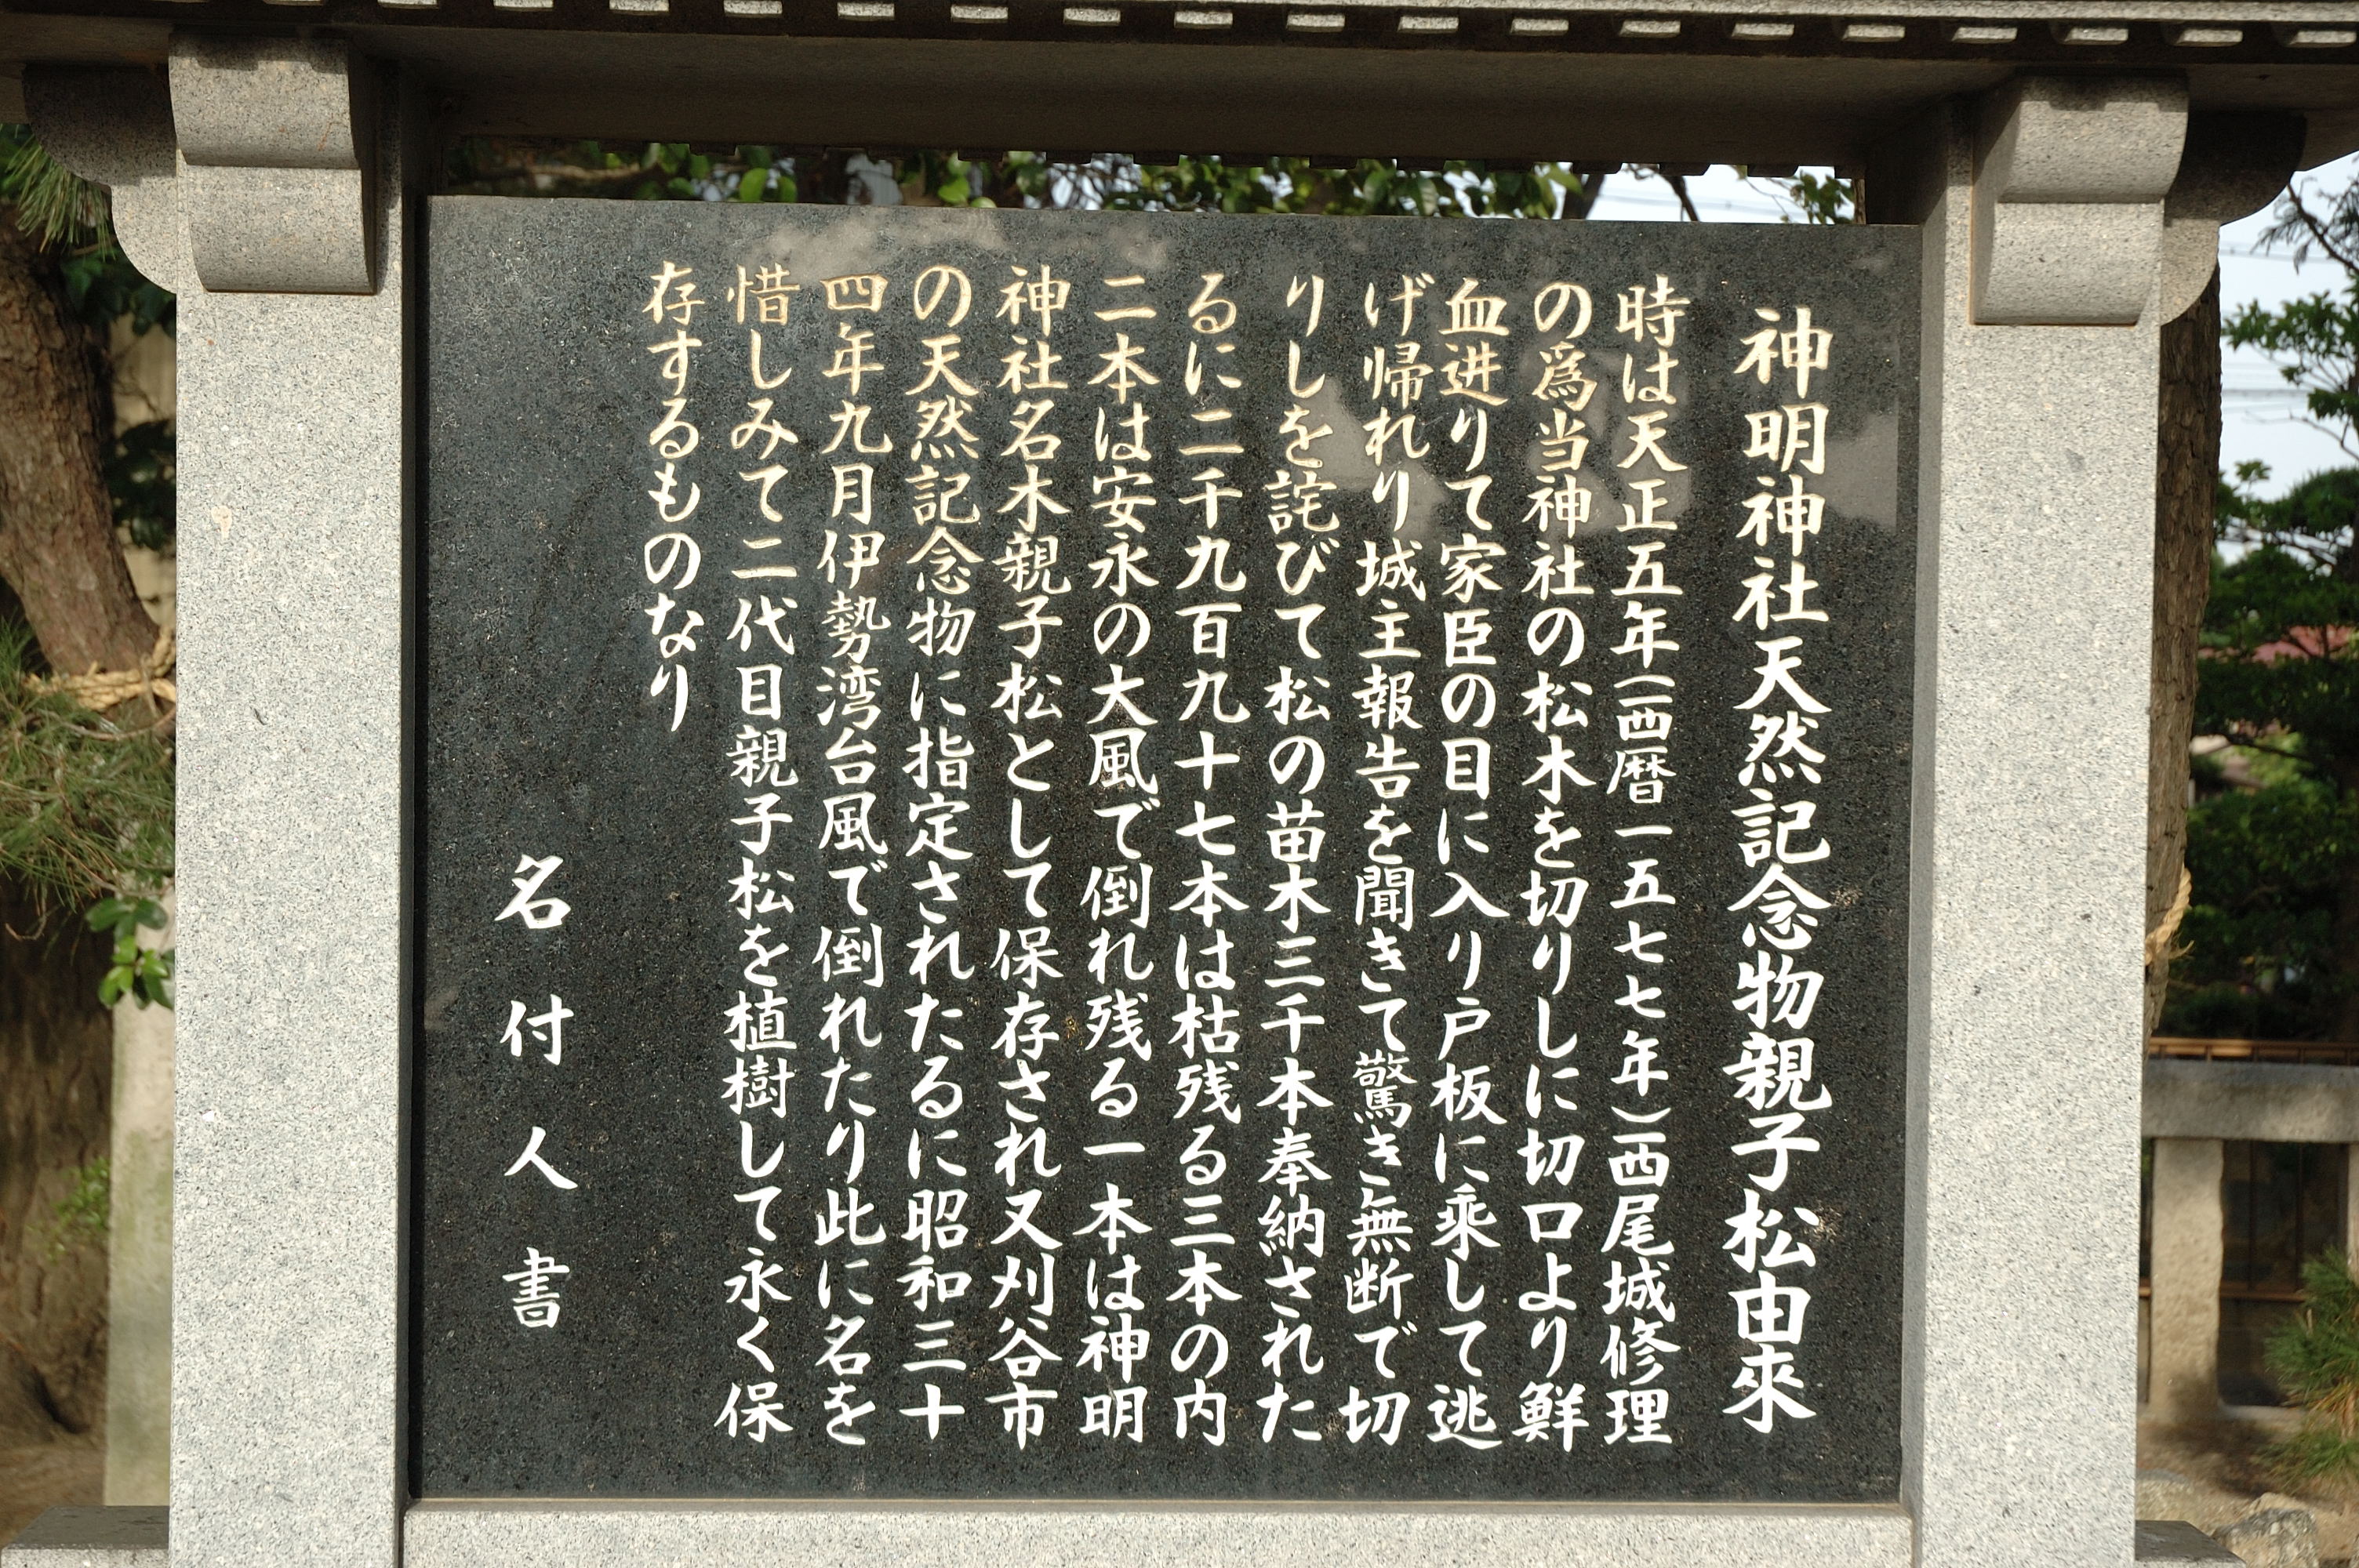 神明神社天然記念物親子松由來
時は天正五年(西暦一五七七年)西尾城修理
の為当神社の松木を切りしに切口より鮮
血进りて家臣の目に入り戸板に乗して逃
げ帰れり城主報告を聞きて驚き無断で切
りしを詫びて松の苗木三千本奉納された
るに二千九百九十七本は枯残る三本の内
二本は安永の大風で倒れ残る一本は神明
神社名木親子松として保存され又刈谷市
の天然記念物に指定されたるに昭和三十
四年九月伊勢湾台風で倒れたり此に名を
惜しみて二代目親子松を植樹して永く保
存するものなり
名付人書